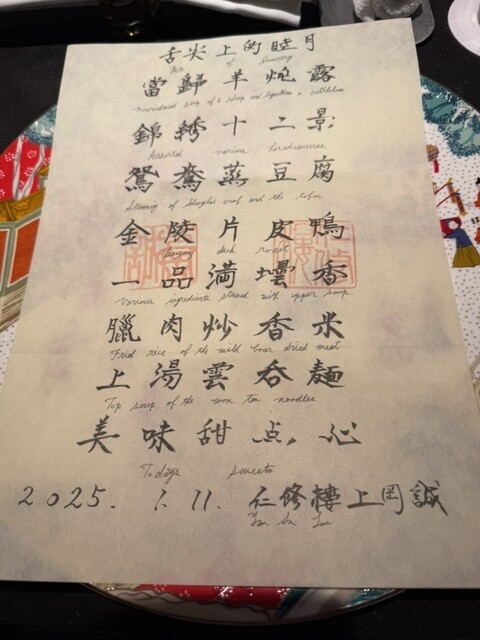 舌尖上的睦月
of January
當歸羊炖露
Nourishment soup of a sheep and Ligusticum
錦綉十二景
Assorted various horsdoeuvres
鴛鴦蒸豆腐
Steaming of Shanghai and the tofu
金陵片皮鴨
duck roast
一品満壜香
Various ingredients stewed with upper soup
臘肉炒香米
Fried rice of the wild boar dried meat
上湯雲呑麵
Top soup of the won ton noodles
美味甜点心
Todays sweets
2025. 1. 11. 仁修樓上岡誠